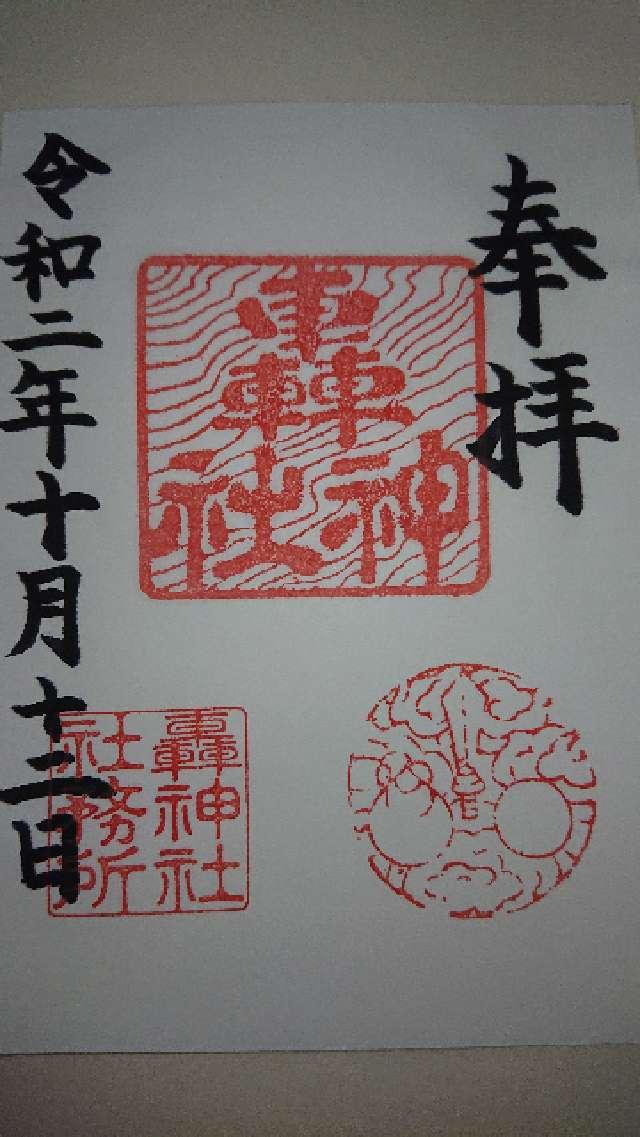 奉拝
轟神社
轟神社
社務所
令和二年十月十二日